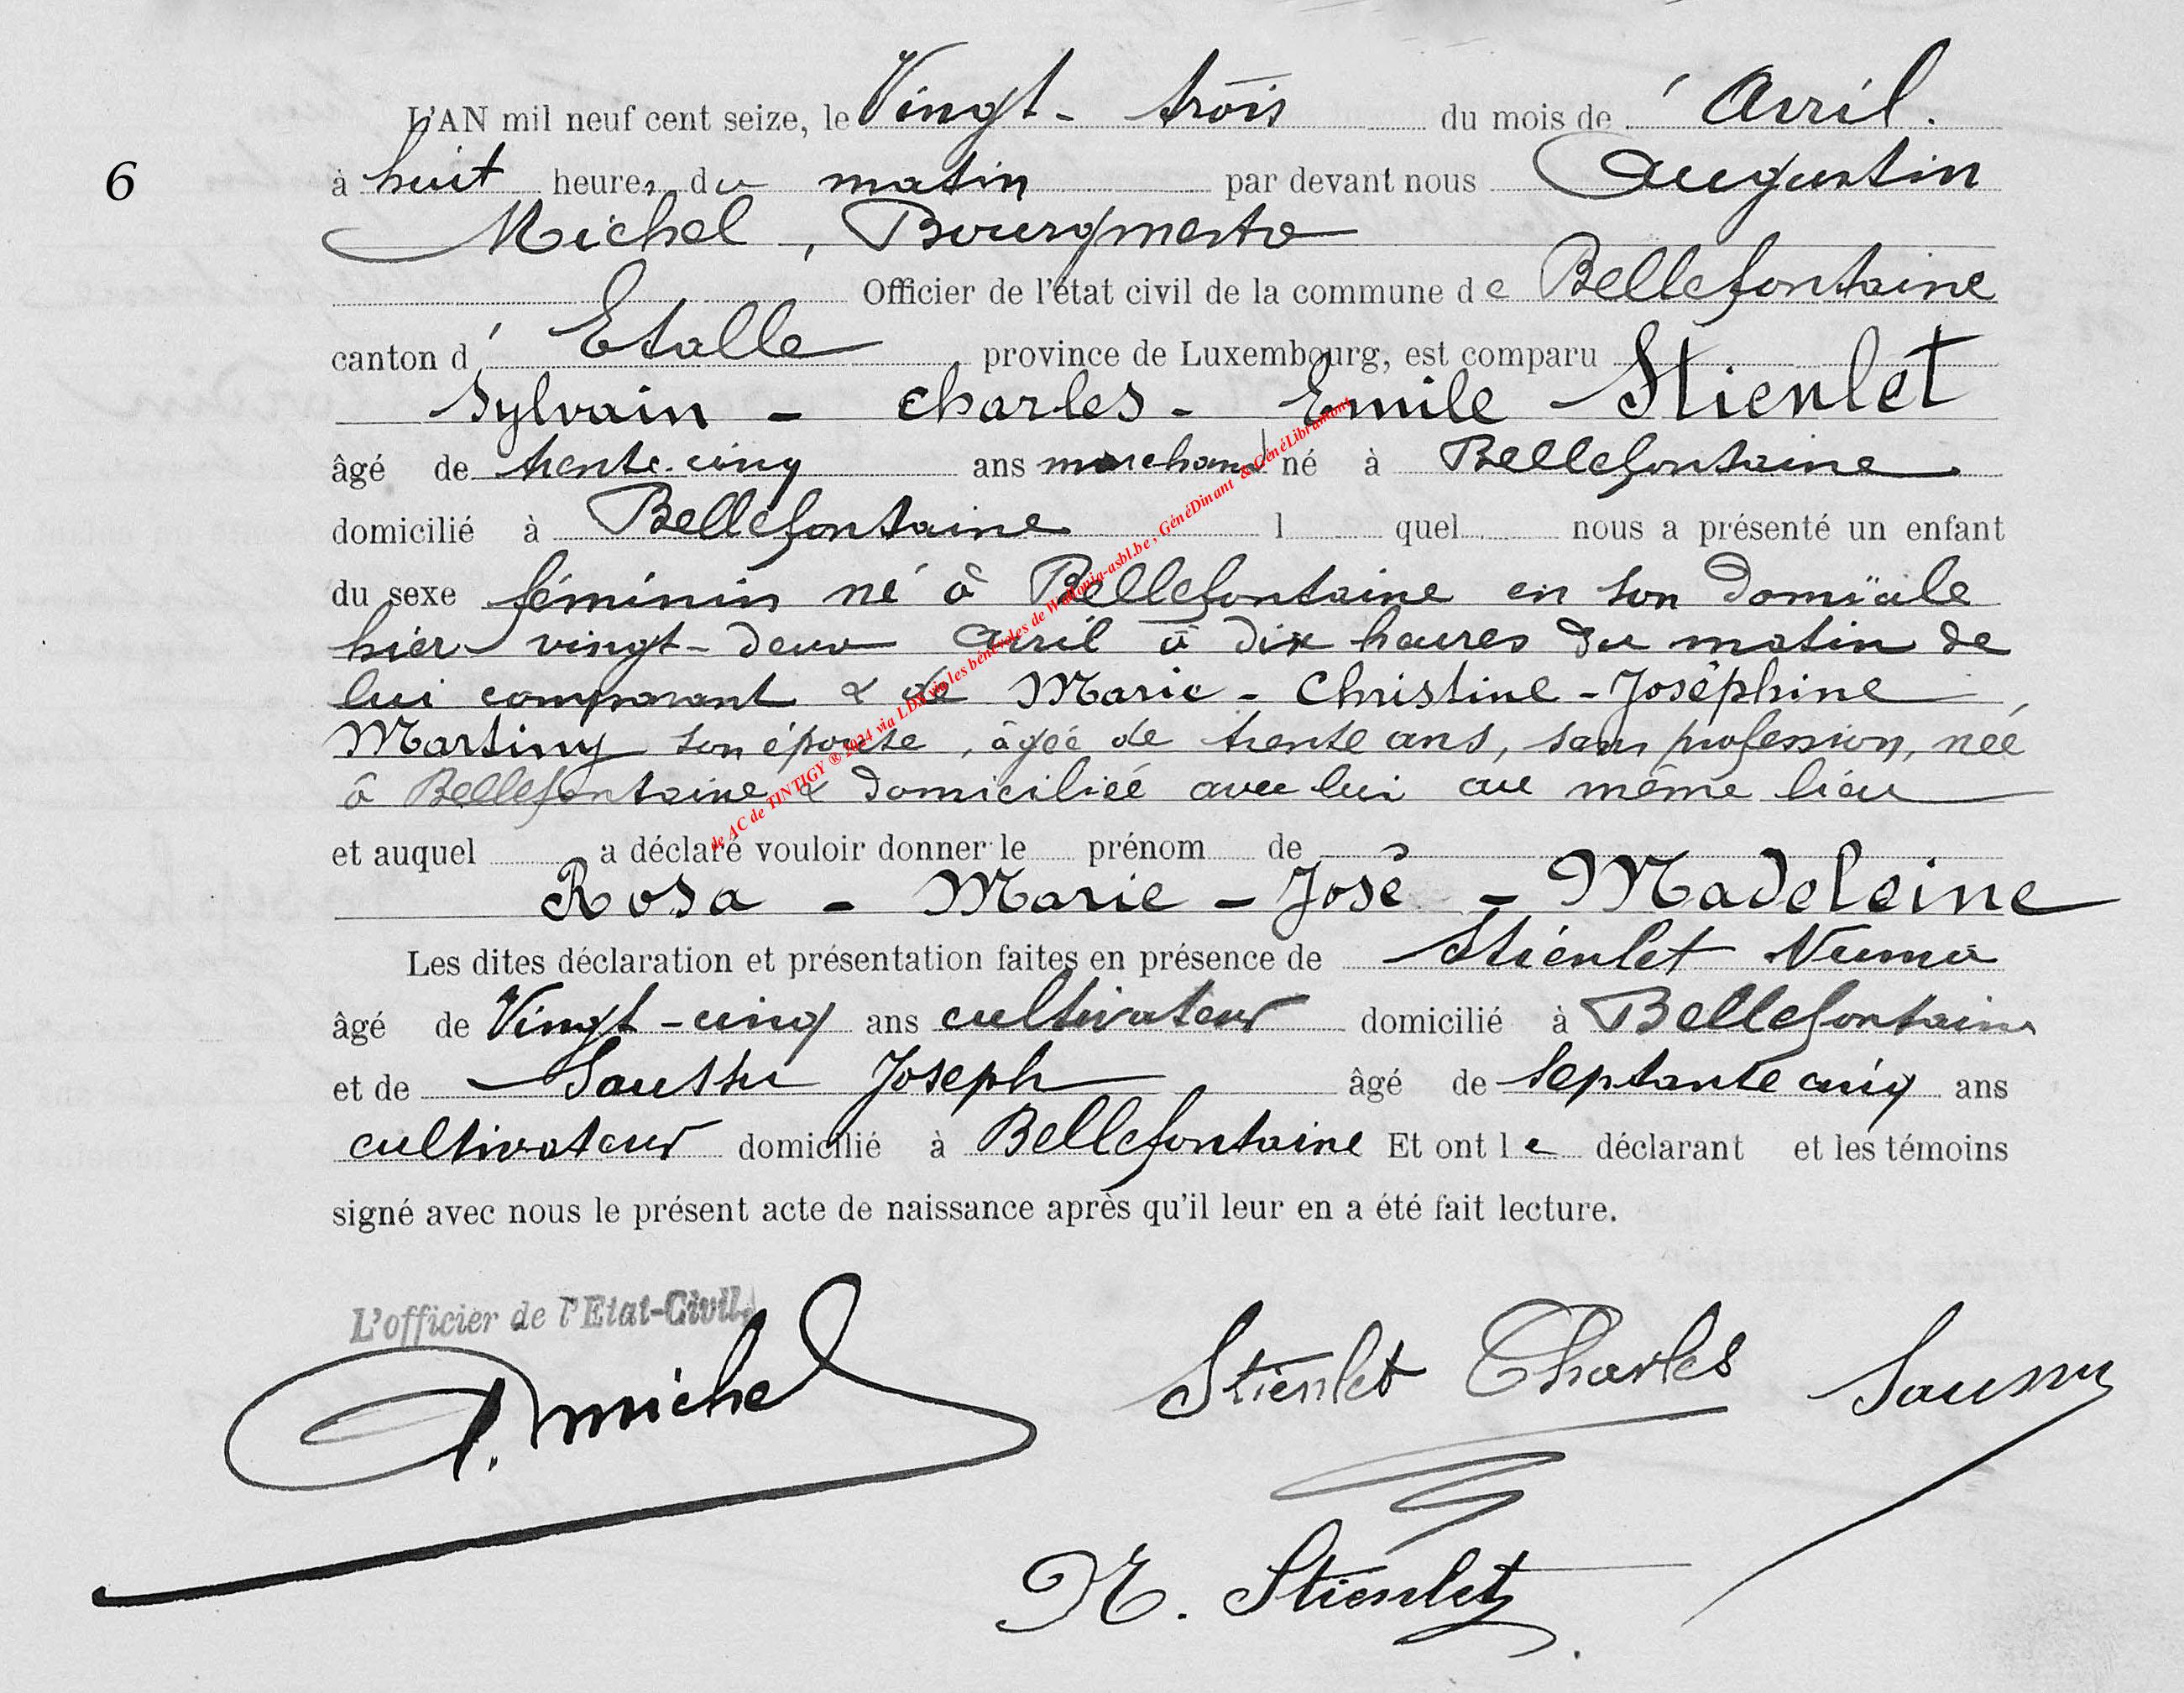 L'AN mil neuf cent seize, le Vingt-trois du mois de Avril.
6
à huit heures du matin par devant nous Augustin
Michel, Bourgmestre
Officier de l'état civil de la commune de Bellefontaine
canton d'Etalle province de Luxembourg, est comparu
Sylvain - Charles - Emile Stienlet
âgé de trente-cinq ans marchand né à Bellefontaine
domicilié à Bellefontaine l quel nous a présenté un enfant
du sexe féminin né à Bellefontaine en son domicile
hier vingt-deux avril à dix heures du matin de
lui comparant & de Marie - Christine - Joséphine
Martiny son épouse, âgée de trente ans, sans profession, née
à Bellefontaine & domiciliée avec lui au même lieu
et auquel a déclaré vouloir donner le prénom de
Rosa - Marie - José - Madeleine
Les dites déclaration et présentation faites en présence de Stienlet Numa
âgé de Vingt-cinq ans cultivateur domicilié à Bellefontaine
et de Saussu Joseph âgé de septante cinq ans
cultivateur domicilié à Bellefontaine Et ont le déclarant et les témoins
signé avec nous le présent acte de naissance après qu'il leur en a été fait lecture.
L'officier de l'Etat-Civil,
A. Michel
Stienlet Charles
Saussu
N. Stienlet
de AC de TINTIGY ® 2024 via LDS via les bénévoles de Wallonia-asbl.be, GénéDinant & GénéLibramont